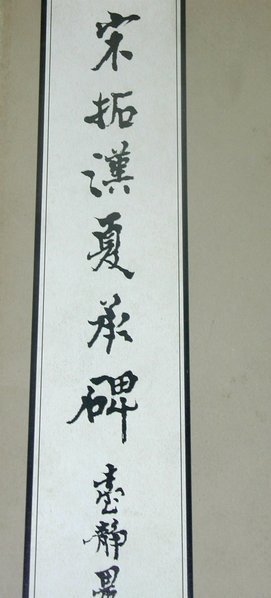 宋拓漢夏承碑
臺靜